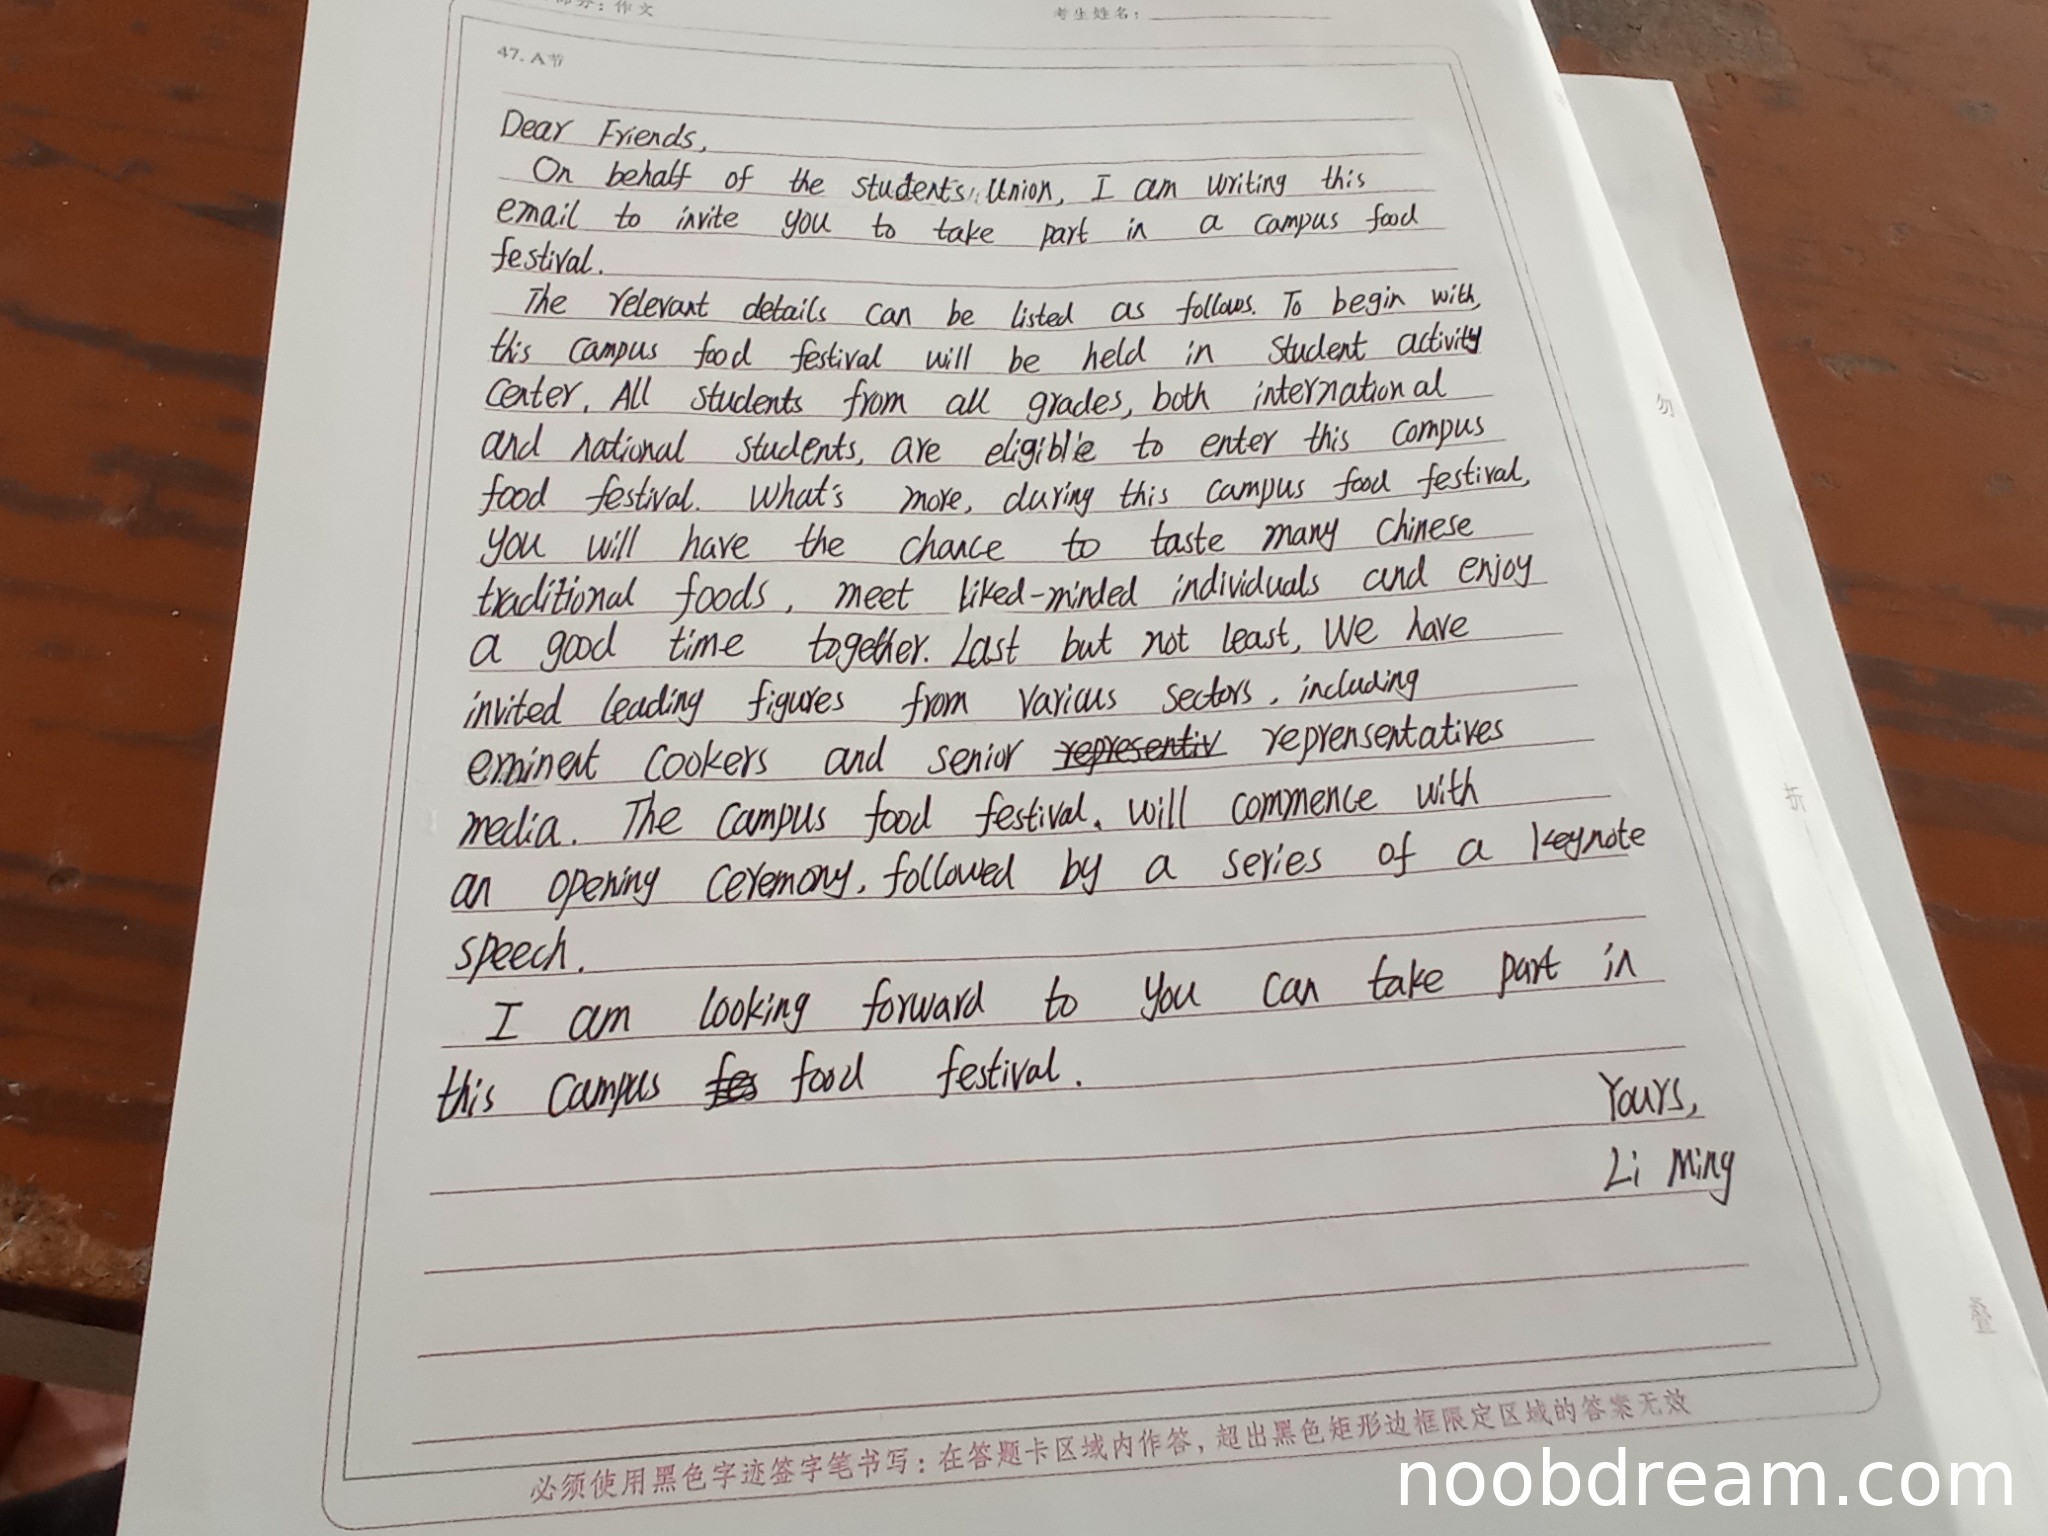 部分：作文
考生姓名：
47. A节
Dear Friends,
On behalf of the students' Union, I am writing this
email to invite you to take part in a campus food
festival.
The relevant details can be listed as follows. To begin with,
this campus food festival will be held in Student activity
center. All students from all grades, both international
and national students, are eligible to enter this campus
food festival. What's more, during this campus food festival,
you will have the chance to taste many Chinese
traditional foods, meet liked-minded individuals and enjoy
a good time together. Last but not least, We have
invited leading figures from various sectors, including
eminent cookers and senior representiv reprensentatives
media. The campus food festival. will commence with
an opening ceremony, followed by a series of a keynote
speech.
I am looking forward to you can take part in
this campus fes food festival.
Yours,
Li Ming
必须使用黑色字迹签字笔书写：在答题卡区域内作答，超出黑色矩形边框限定区域的答案无效
勿
折
叠
noobdream.com